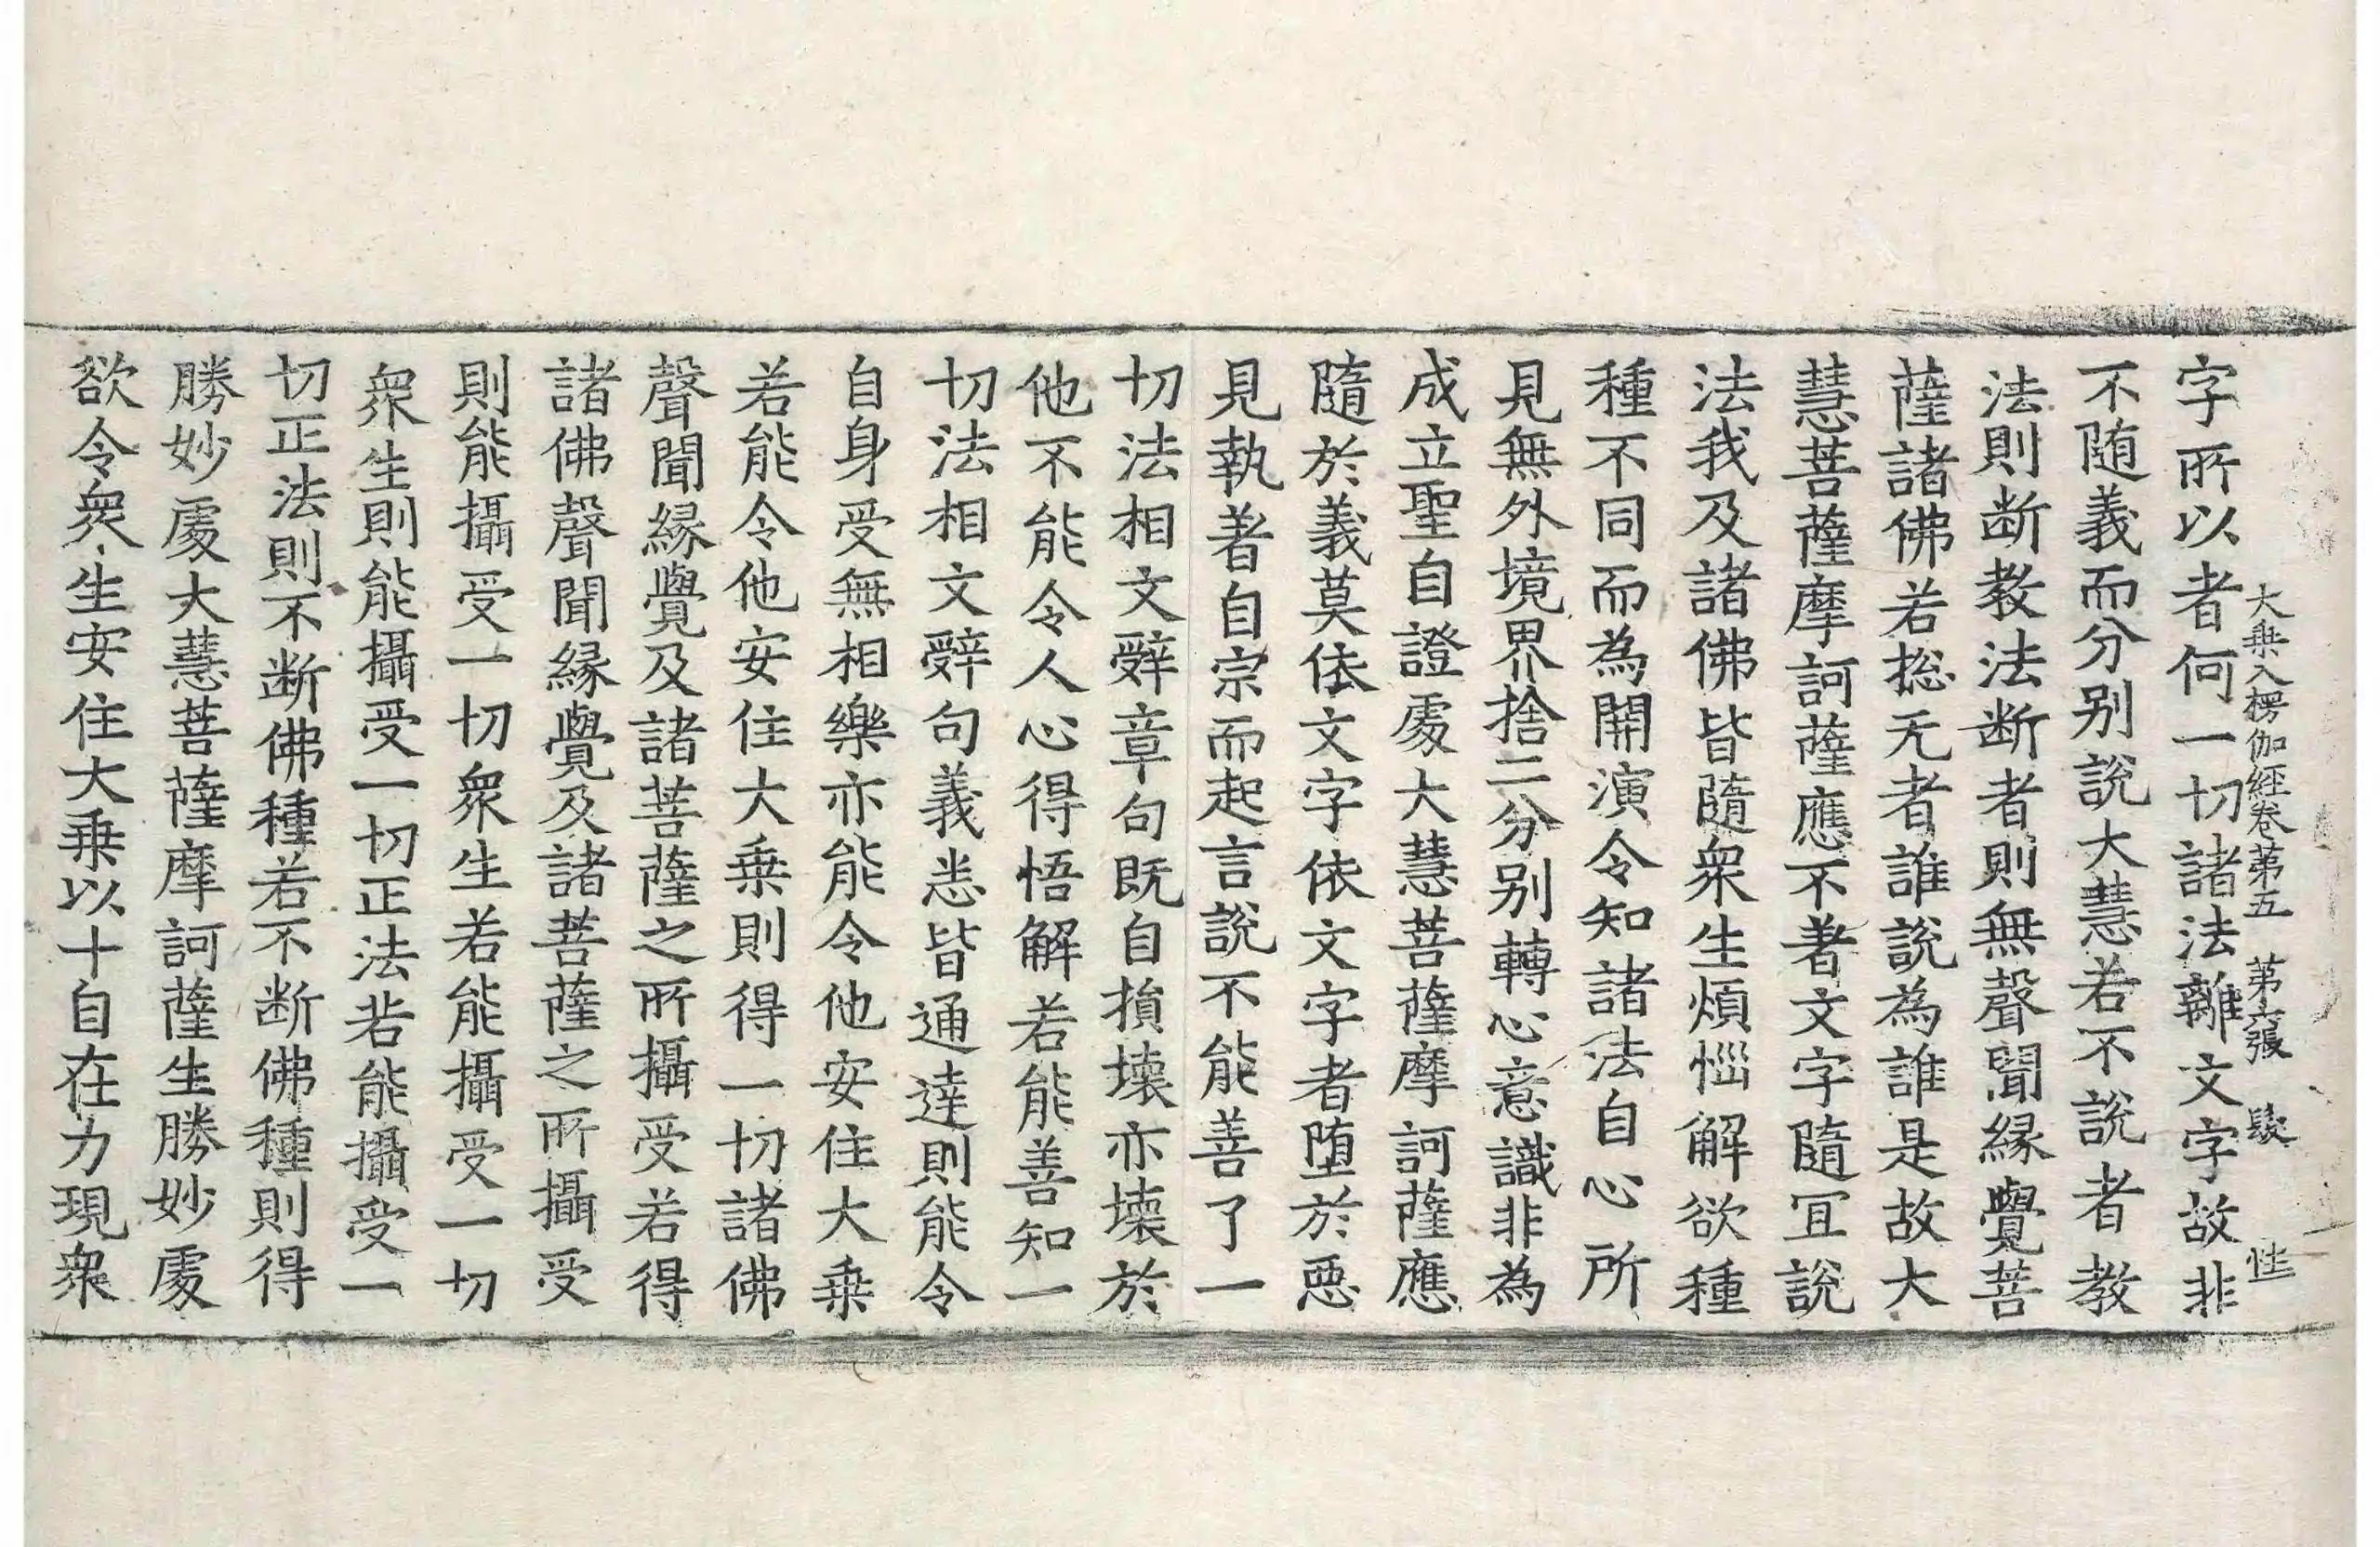 大乗入楞伽經卷苐五 苐六張 駿 性
字所以者何一切諸法離文字故非
不随義而分别說大慧若不說者教
法則断教法断者則無聲聞縁覺菩
薩諸佛若揔无者誰說為誰是故大
慧菩薩摩訶薩應不著文字隨冝說
法我及諸佛皆隨衆生煩惱解欲種
種不同而為開演令知諸法自心所
見無外境界捨二分别轉心意識非為
成立聖自證處大慧菩薩摩訶薩應
隨於義莫依文字依文字者堕於惡
見執著自宗而起言說不能善了一
切法相文辝章句既自損壊亦壊於
他不能令人心得悟解若能善知一
切法相文辝句義悉皆通達則能令
自身受無相樂亦能令他安住大乗
若能令他安住大乗則得一切諸佛
聲聞縁覺及諸菩薩之所攝受若得
諸佛聲聞縁覺及諸菩薩之所攝受
則能攝受一切衆生若能攝受一切
衆生則能攝受一切正法若能攝受一
切正法則不断佛種若不断佛種則得
勝妙處大慧菩薩摩訶薩生勝妙處
欲令衆生安住大乗以十自在力現衆